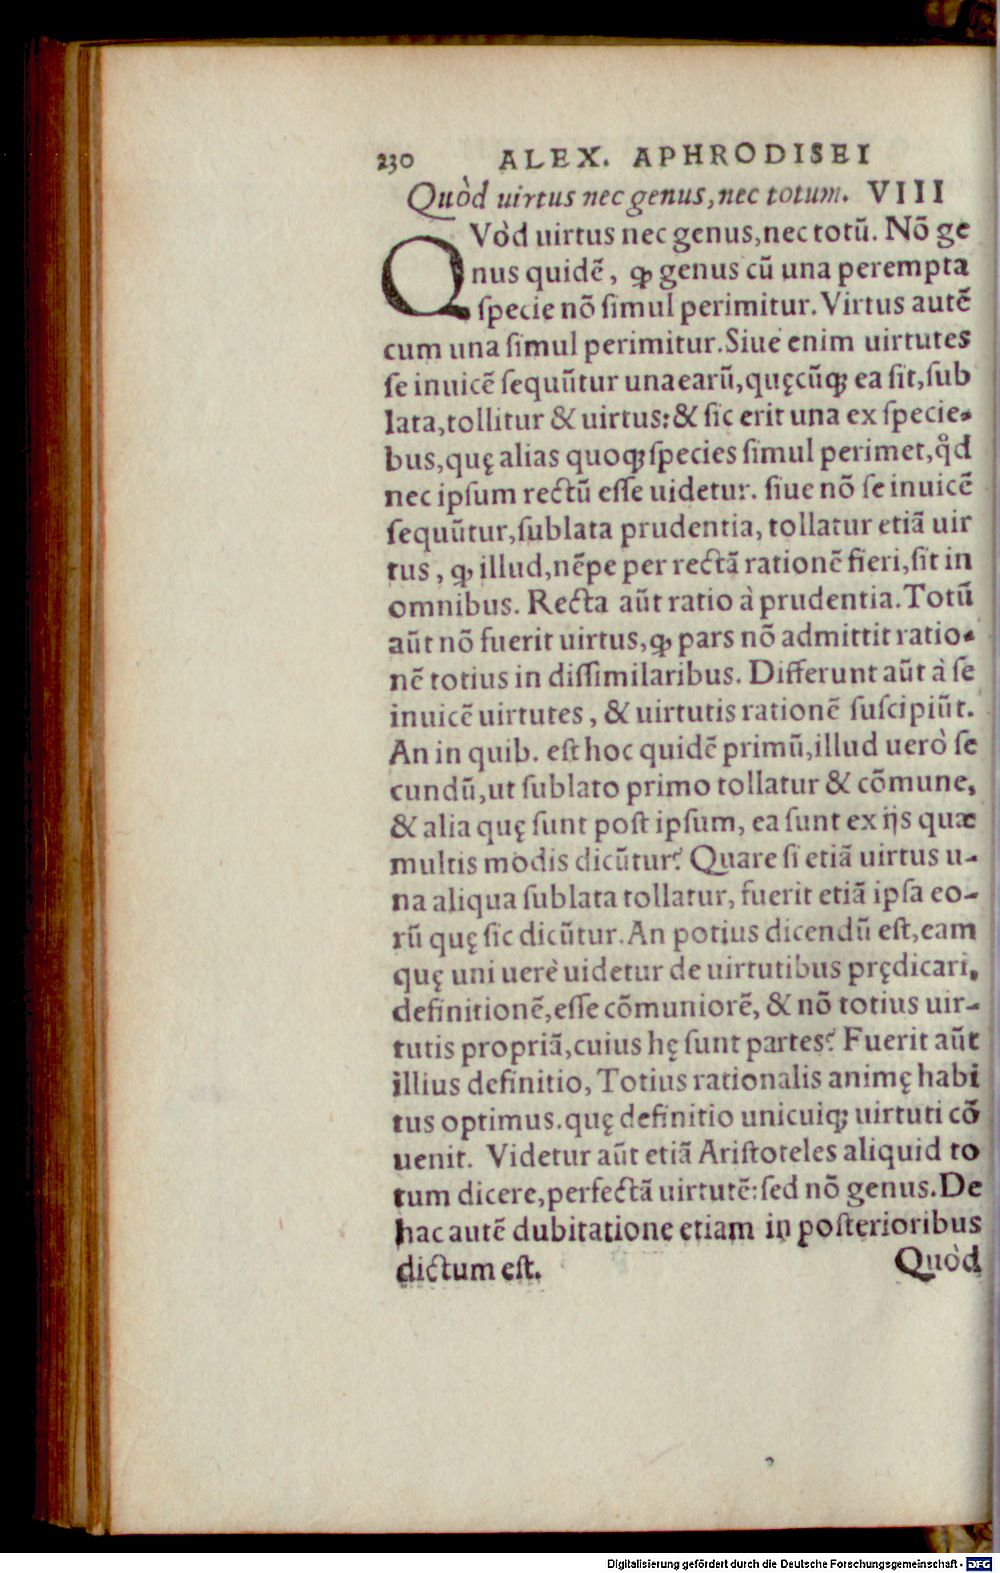 230 ALEX. APHRODISEI
Quòd uirtus nec genus, nec totum. VIII
QVòd uirtus nec genus, nec totũ. Nõ ge
nus quidẽ, ꝙ genus cũ una perempta
ſpecie nõ ſimul perimitur. Virtus autẽ
cum una ſimul perimitur. Siue enim uirtutes
ſe inuicẽ ſequũtur unaearũ, quęcũqꝫ ea ſit, ſub
lata, tollitur & uirtus: & ſic erit una ex ſpecie-
bus, quę alias quoqꝫ ſpecies ſimul perimet, qd̊
nec ipſum rectũ eſſe uidetur. ſiue nõ ſe inuicẽ
ſequũtur, ſublata prudentia, tollatur etiã uir
tus, ꝙ illud, nẽpe per rectã rationẽ fieri, ſit in
omnibus. Recta aũt ratio à prudentia. Totũ
aũt nõ fuerit uirtus, ꝙ pars nõ admittit ratio-
nẽ totius in diſſimilaribus. Differunt aũt à ſe
inuicẽ uirtutes, & uirtutis rationẽ ſuſcipiũt.
An in quib. eſt hoc quidẽ primũ, illud uerò ſe
cundũ, ut ſublato primo tollatur & cõmune,
& alia quę ſunt poſt ipſum, ea ſunt ex ijs quæ
multis modis dicũtur? Quare ſi etiã uirtus u-
na aliqua ſublata tollatur, fuerit etiã ipſa eo-
rũ quę ſic dicũtur. An potius dicendũ eſt, eam
quę uni uerè uidetur de uirtutibus prędicari,
definitionẽ, eſſe cõmuniorẽ, & nõ totius uir-
tutis propriã, cuius hę ſunt partes? Fuerit aũt
illius definitio, Totius rationalis animę habi
tus optimus. quę definitio unicuiqꝫ uirtuti cõ
uenit. Videtur aũt etiã Ariſtoteles aliquid to
tum dicere, perfectã uirtutẽ: ſed nõ genus. De
hac autẽ dubitatione etiam in poſterioribus
dictum eſt. Quòd
Digitalisierung gefördert durch die Deutsche Forschungsgemeinschaft - DFG